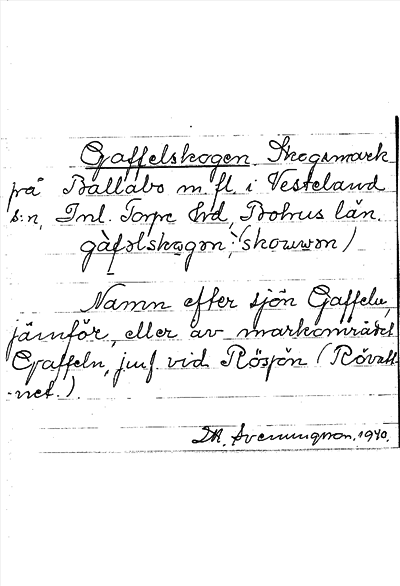 Gaffelskogen. Skogsmark
på Ballabo m. fl. i Vesteland
s:n, Inl. Torpe hrd, Bohus län.
gàfəlskogən; (skouwən)
Namn efter sjön Gaffeln,
jämför, eller av markområdet
Gaffeln, jmf vid Rösjön (Rövatt-
net.).
M. Aveningson. 1940.